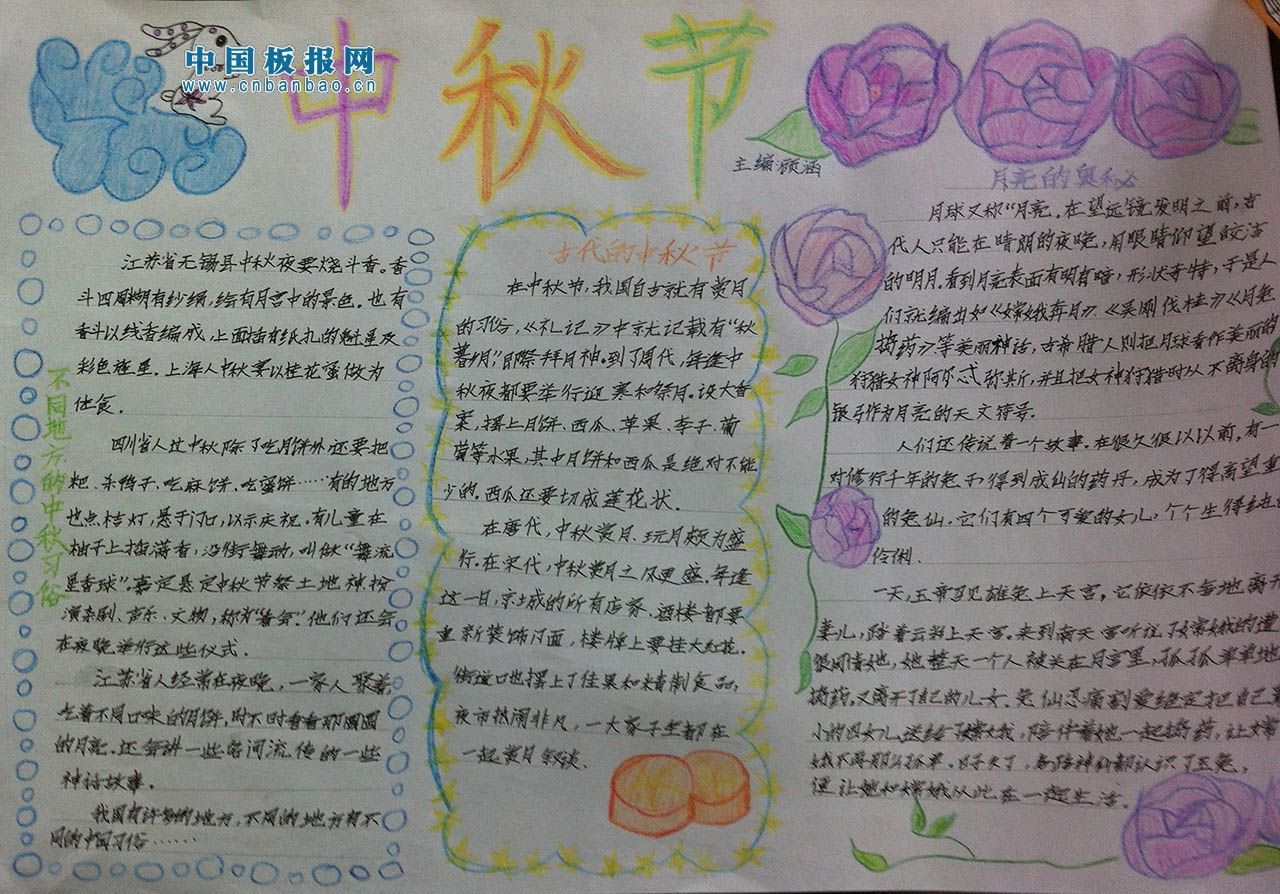 中国板报网
www.cnbanbao.cn
中秋节
主编:顾涵
不同地方的中秋习俗
江苏省无锡县中秋夜要烧斗香。香
斗四周糊有纱绢,绘有月宫中的景色。也有
香斗以线香编成,上面插有纸扎的魁星及
彩色旌星。上海人中秋宴以桂花蜜做为
佐食.
四川省人过中秋除了吃月饼外还要把
粑、杀鸭子、吃麻饼、吃蜜饼……有的地方
也点桔灯,悬于门口,以示庆祝。有儿童在
柚子上插满香,沿街舞动,叫做“舞流
星香球”。嘉定县定中秋节祭土地神扮
演杂剧、声乐、文物,称为“看会”.他们还会
在夜晚举行这些仪式.
江苏省人经常在夜晚,一家人聚着,
吃着不同口味的月饼,时不时看看那圆圆
的月亮.还会讲一些名间流传的一些
神话故事.
我国有许多的地方,不同的地方有不
同的中国习俗……
古代的中秋节
在中秋节,我国自古就有赏月
的习俗,《礼记》中就记载有“秋
暮明”,即祭拜月神.到了周代,每逢中
秋夜都要举行迎寒和祭月。设大香
案,摆上月饼、西瓜、苹果、李子、葡
萄等水果,其中月饼和西瓜是绝对不能
少的.西瓜还要切成莲花状.
在唐代,中秋赏月、玩月颇为盛
行.在宋代,中秋赏月之风更盛.每逢
这一日,京城的所有店家、酒楼都要
重新装饰门面,楼牌上要挂大红花.
街道口也摆上了佳果和精制食品,
夜市热闹非凡,一大家子坐都在
一起赏月叙谈.
月亮的奥秘
月球又称“月亮.在望远镜发明之前,古
代人只能在晴朗的夜晚,用眼睛仰望皎洁
的明月.看到月亮表面有明有暗,形状奇特,于是人
们就编出如《嫦娥奔月》《吴刚伐桂》《月兔
捣药》等美丽神话,古希腊人则把月球看作美丽的
狩猎女神阿尔忒弥斯,并且把女神狩猎时从不离身的
银弓作为月亮的天文符号.
人们还传说着一个故事.在很久很以以前,有一
对修行千年的兔子,得到成仙的药丹,成为了得高望重
的兔仙.它们有四个可爱的女儿,个个生得纯
伶俐.
一天,玉帝召见雄兔上天宫,它依依不舍地离开
妻儿,踏着云彩上天宫.来到南天宫听说了嫦娥的遭
很同情她,她整天一个人被关在月宫里,孤孤单单地
捣药,又离开了自己的儿女.兔仙忍痛割爱绝定把自己
小的四女儿送给了嫦娥,陪伴着她一起捣药,让嫦
娥不再那么孤单.日子久了,各路神仙都认识了玉兔,
便让她和嫦娥从此在一起生活.